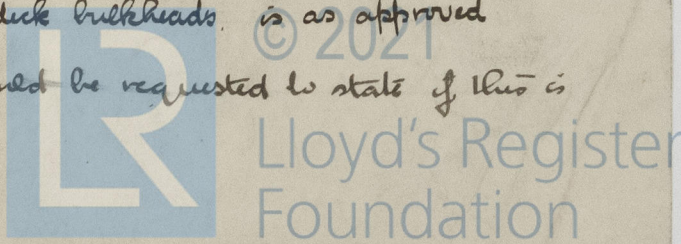 deck bulkheads. is as approved
© 2021
be requested to state if this is
LR
Lloyd's Register
Foundation